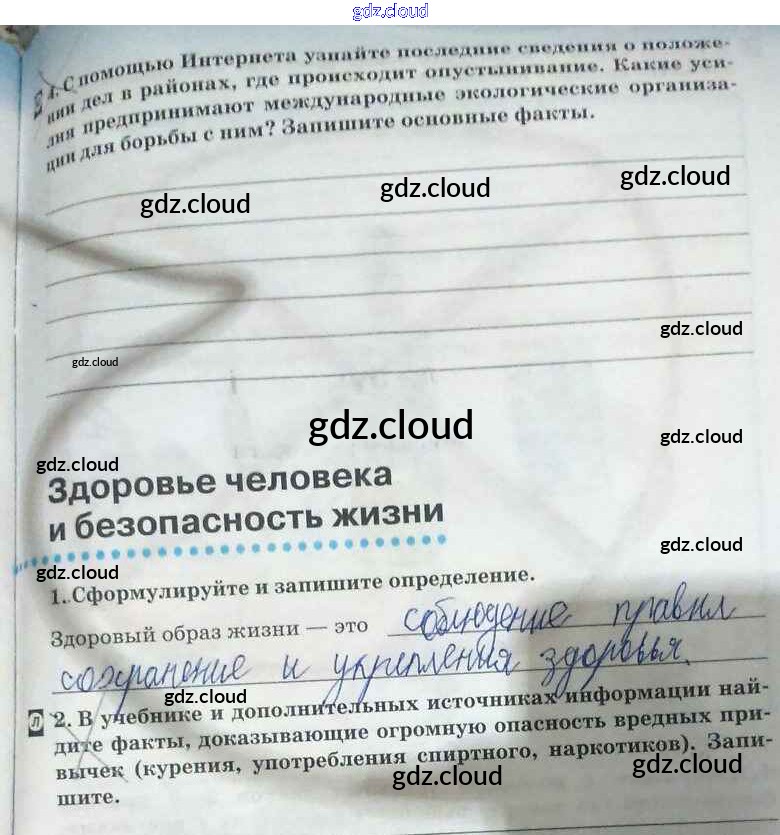 gdz.cloud
4. С помощью Интернета узнайте последние сведения о положе-
нии дел в районах, где происходит опустынивание. Какие уси-
лия предпринимают международные экологические организа-
ции для борьбы с ним? Запишите основные факты.
gdz.cloud gdz.cloud gdz.cloud
gdz.cloud
gdz.cloud
gdz.cloud
gdz.cloud
gdz.cloud
Здоровье человека
и безопасность жизни
gdz.cloud
gdz.cloud
1. Сформулируйте и запишите определение.
Здоровый образ жизни — это соблюдение правил
сохранение и укрепления здоровья.
gdz.cloud
л 2. В учебнике и дополнительных источниках информации най-
дите факты, доказывающие огромную опасность вредных при-
вычек (курения, употребления спиртного, наркотиков). Запи-
шите.
gdz.cloud gdz.cloud